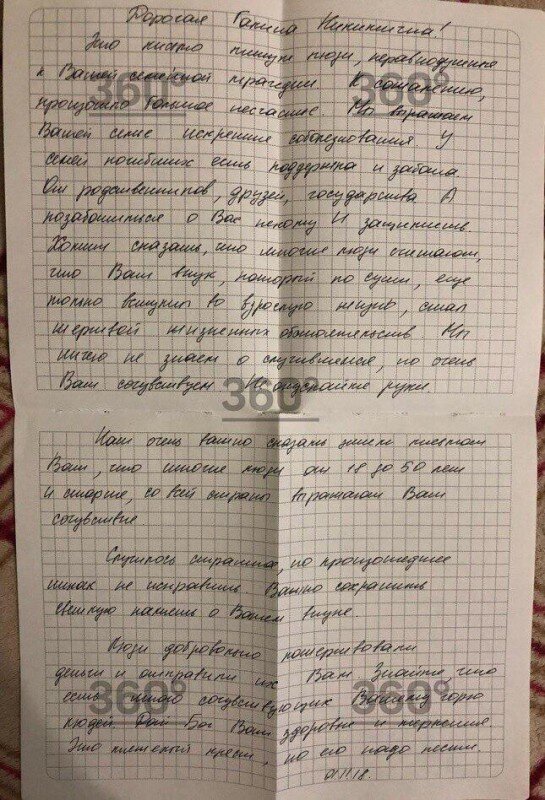 Дорогая Галина Никитична!
Это письмо пишут люди, неравнодушные
к Вашей семейной трагедии. К сожалению,
произошло большое несчастье. Мы выражаем
Вашей семье искренние соболезнования. У
семей погибших есть поддержка и забота.
От родственников, друзей, государства. А
позаботиться о Вас некому. И защитить.
Хотим сказать, что многие люди считают,
что Ваш внук, который по сути, еще
только вступил во взрослую жизнь, стал
жертвой жизненных обстоятельств. Мы
ничего не знаем о случившемся, но очень
Вам сочувствуем. Не опускайте руки.
Нам очень важно сказать этим письмом
Вам, что многие люди от 18 до 50 лет
и старше, со всей страны выражают Вам
сочувствие
Случилось страшное, но произошедшее
никак не исправить. Важно сохранить
светлую память о Вашем внуке.
Люди добровольно пожертвовали
деньги и отправили их Вам. Знайте, что
есть много сочувствующих Вашему горю
людей. Дай Бог Вам здоровья и терпения.
Это тяжелый крест, но его надо нести.
01.11.18.
360°
360°
360°
360°
360°